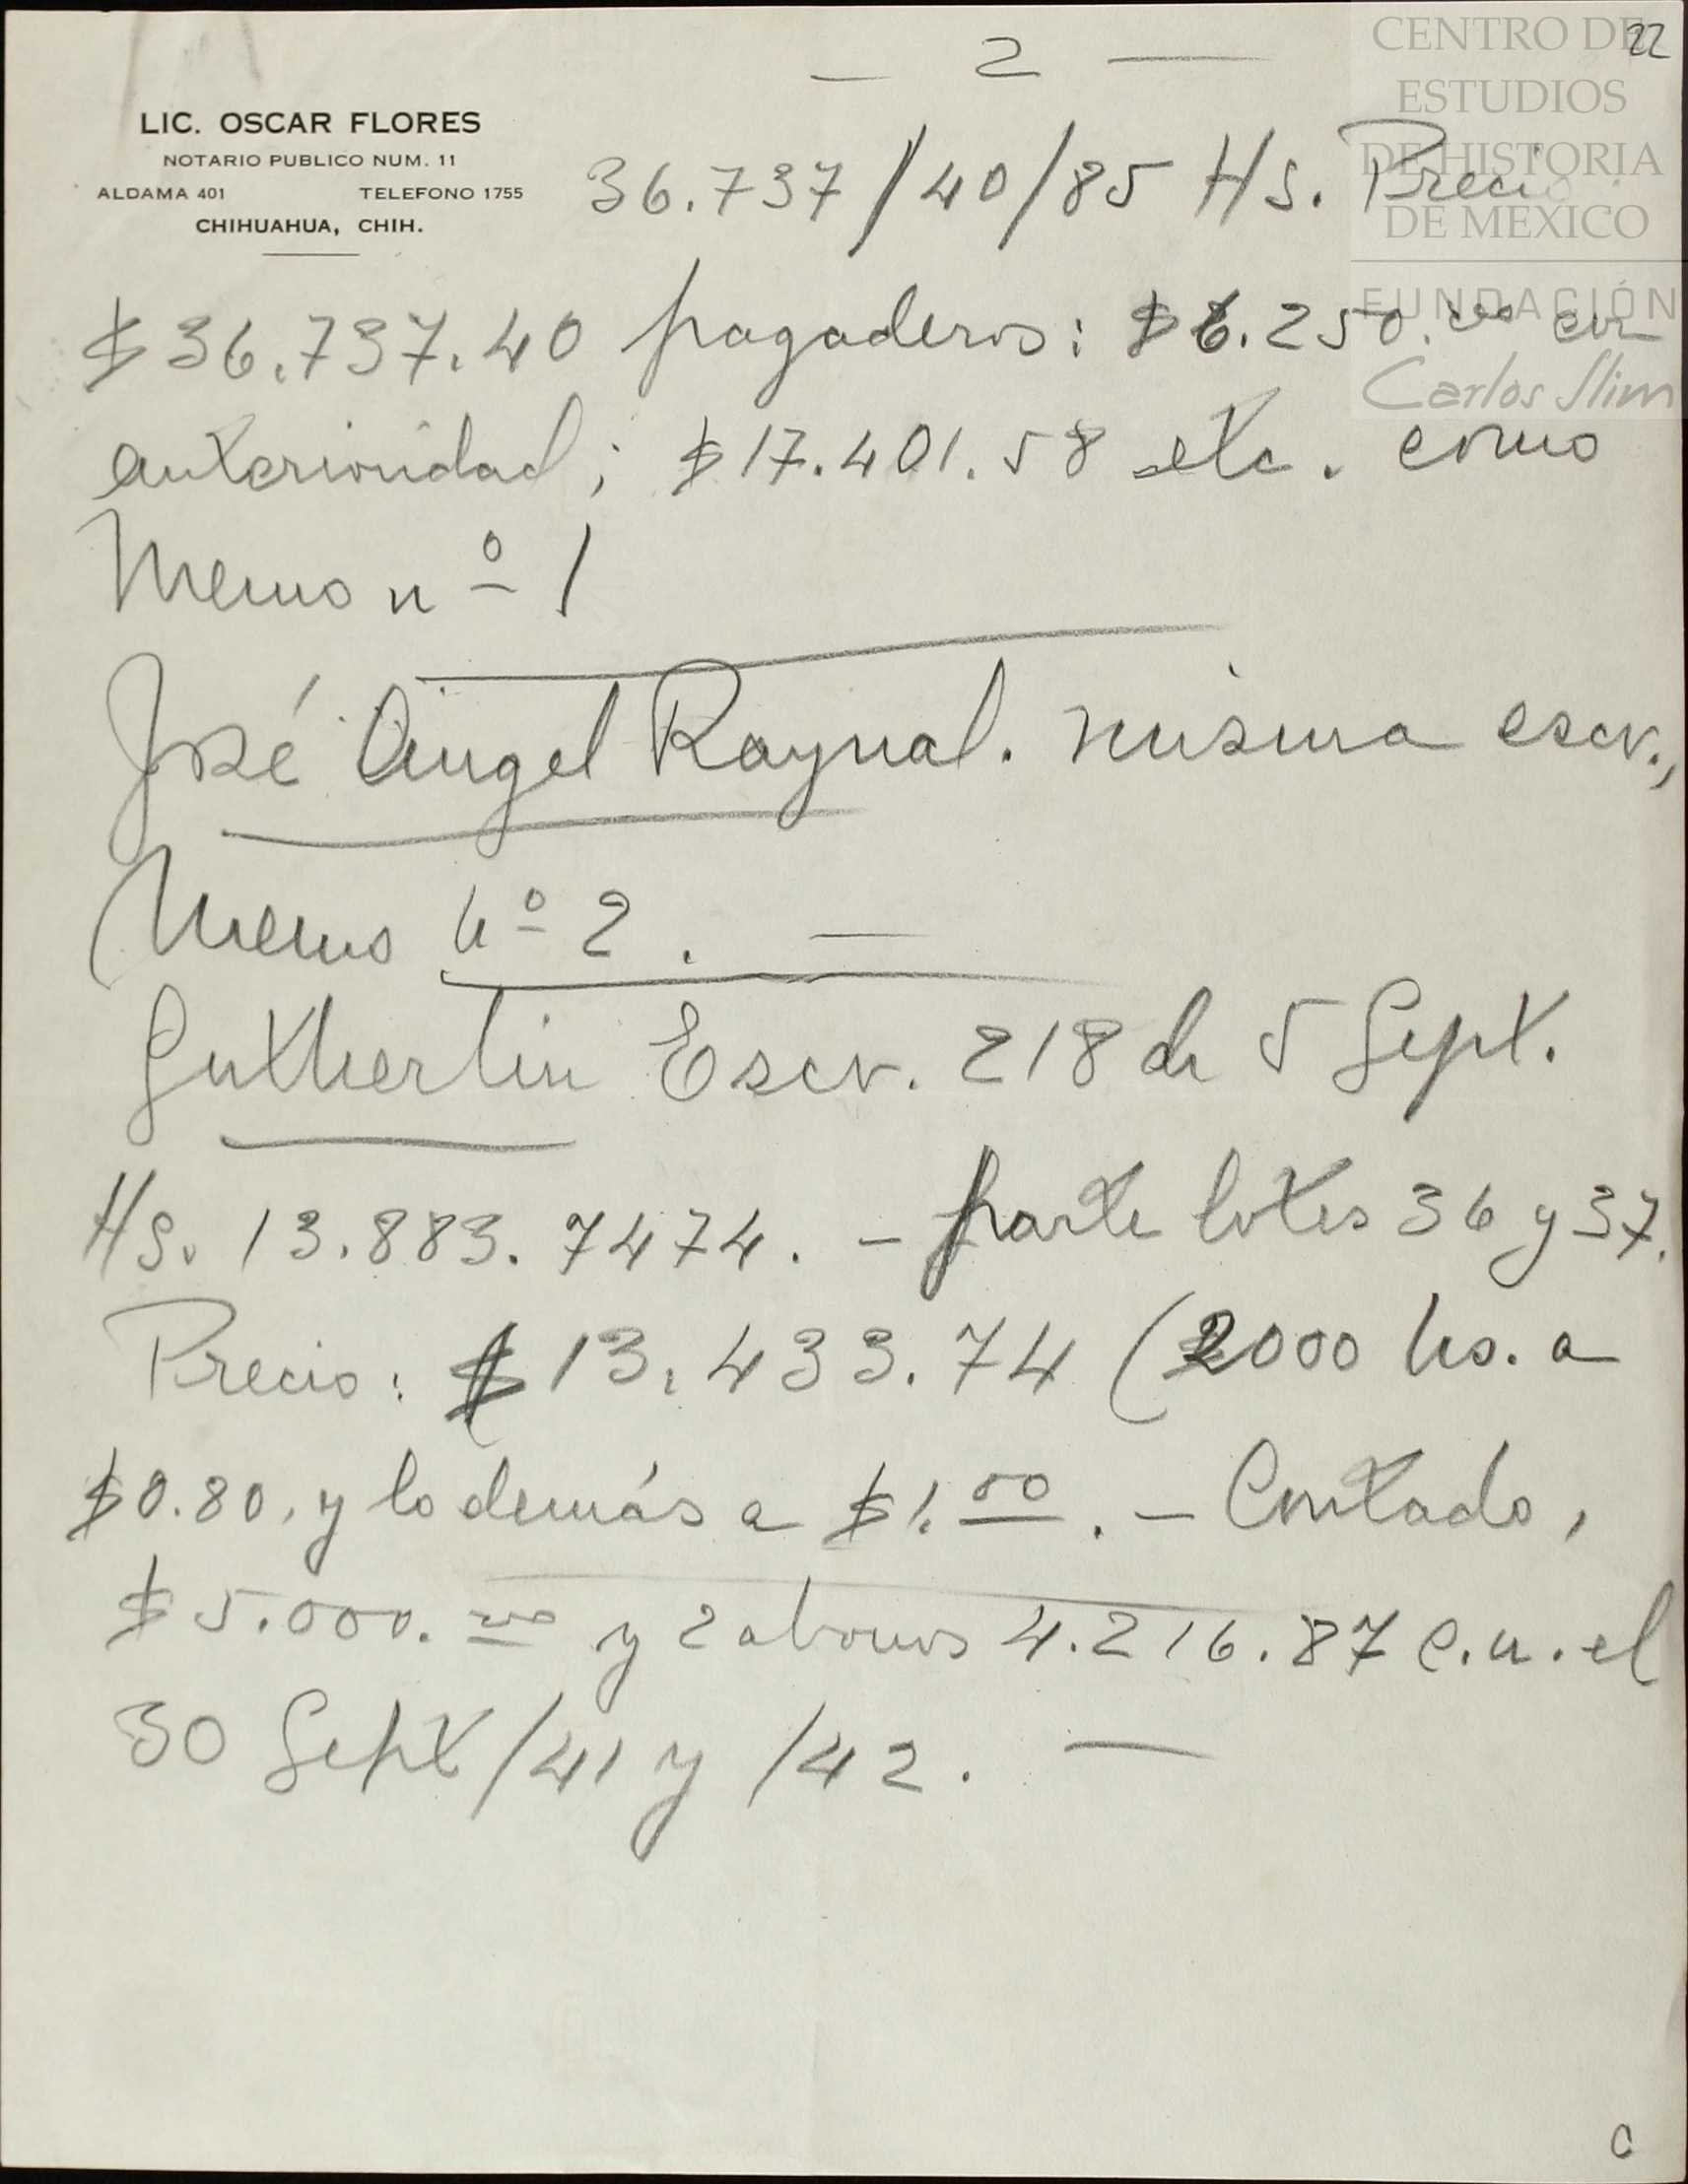 — 2 —
22
CENTRO DE
ESTUDIOS
DE HISTORIA
DE MEXICO
FUNDACIÓN
Carlos Slim
LIC. OSCAR FLORES
NOTARIO PUBLICO NUM. 11
ALDAMA 401 TELEFONO 1755
CHIHUAHUA, CHIH.
36.737/40/85 Hs. Precio
$36.737.40 pagaderos: $6.250.00 con
anterioridad; $17.401.58 etc. como
Memo nº 1
José Angel Raynal. misma escr.,
Memo nº 2. —
Guthertin Escr. 218 de 5 Sept.
Hs. 13.883.7474. - parte lotes 36 y 37.
Precio: $13.433.74 (2000 hs. a
$0.80. y lo demás a $1.00. - Contado,
$5.000.00 y 2 abonos 4.216.87 c.u. el
30 Sept/41 y /42. —